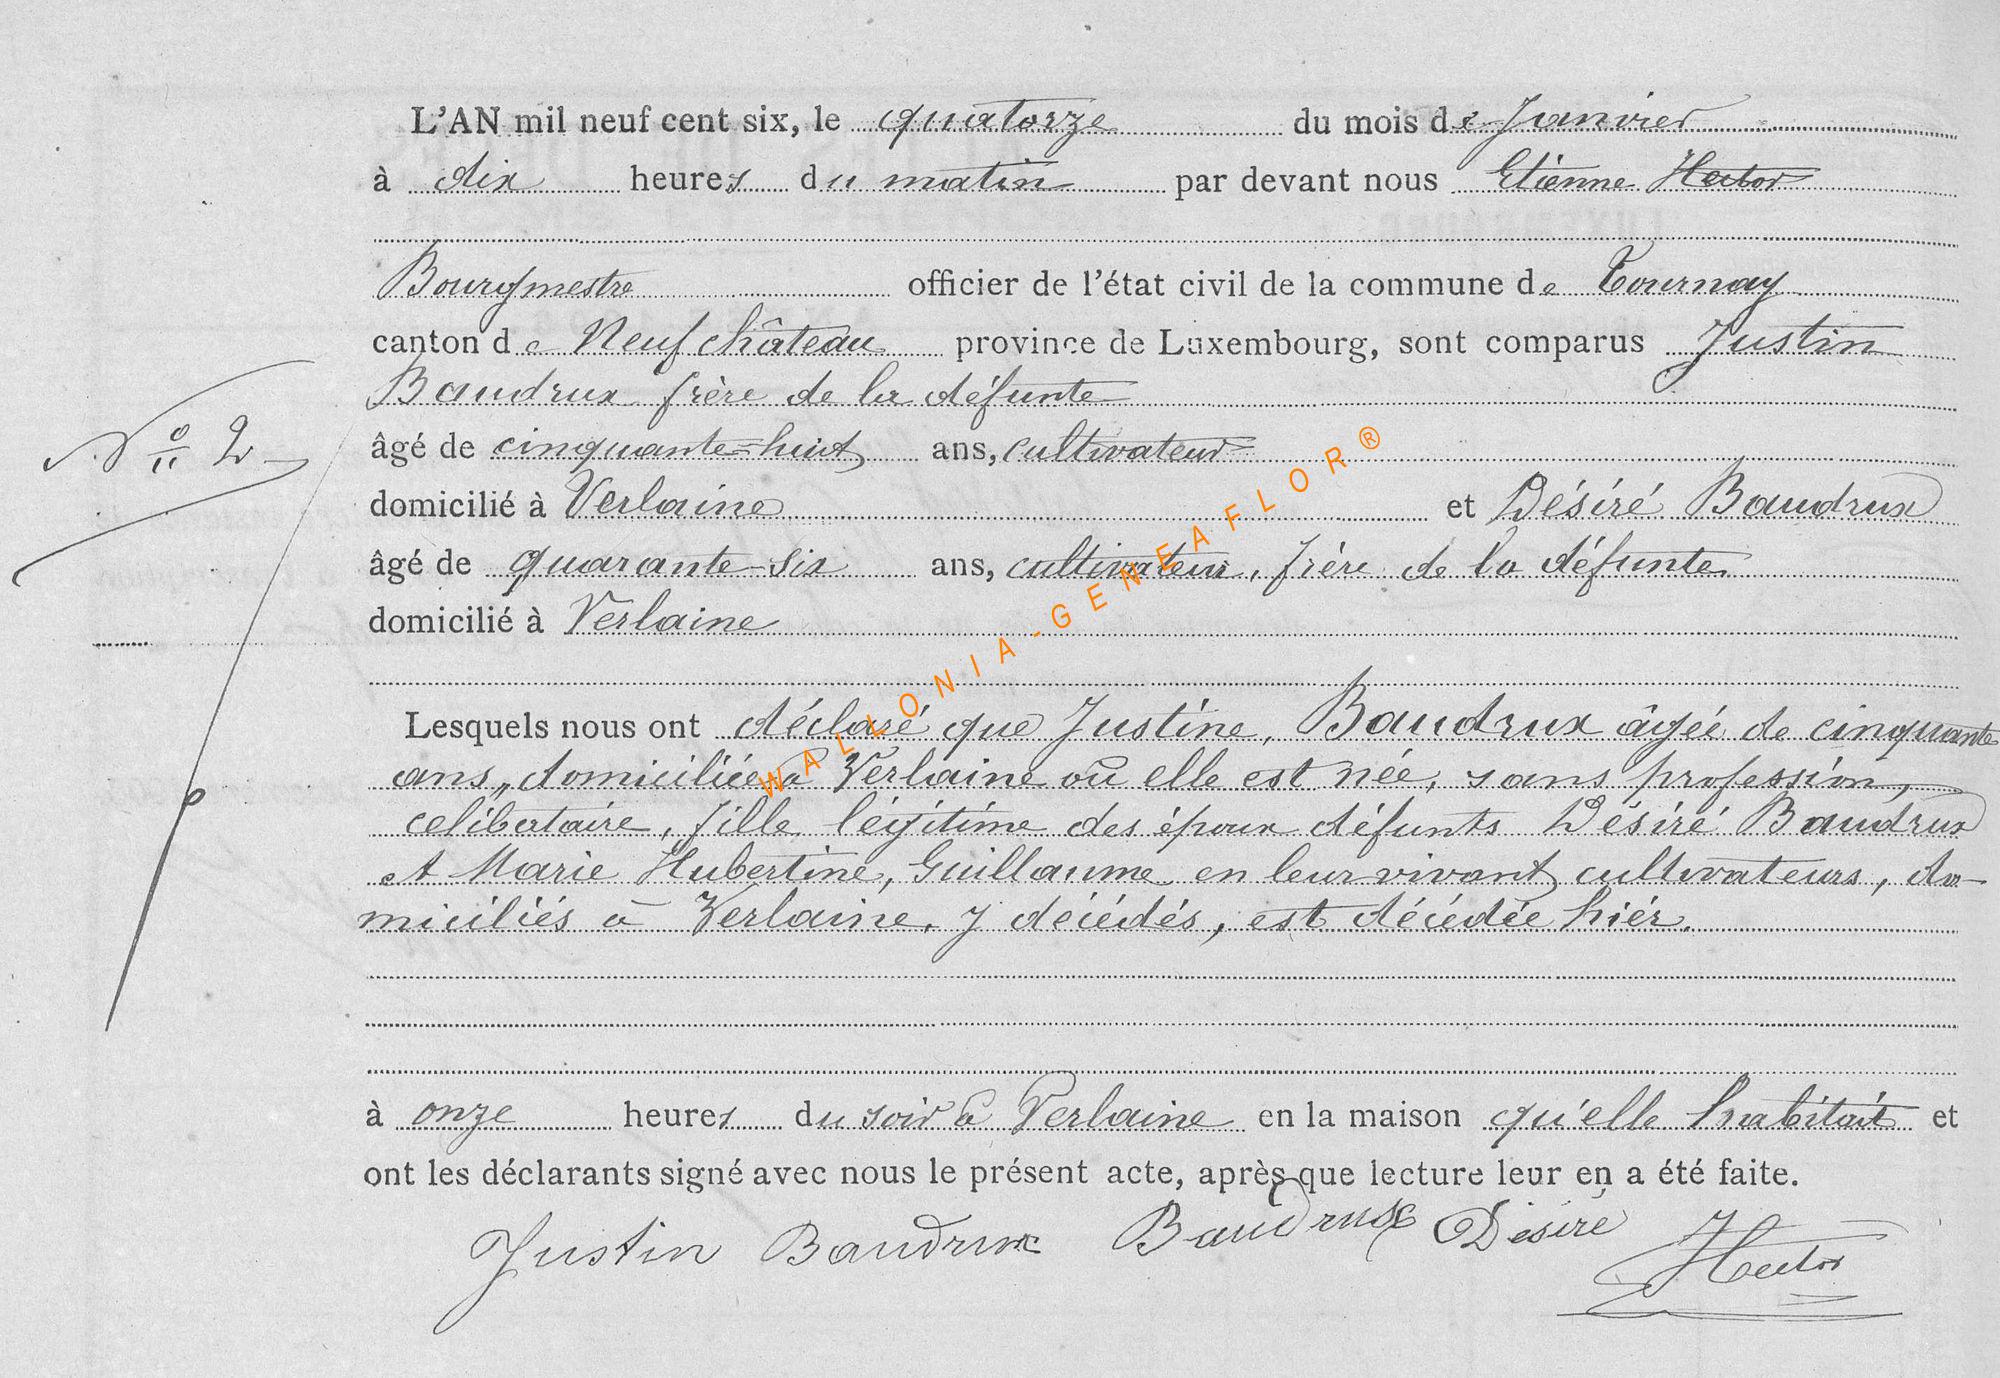 L'AN mil neuf cent six, le quatorze du mois de Janvier
à dix heures du matin par devant nous Etienne Hector
Bourgmestre officier de l'état civil de la commune de Tournay
canton de Neufchâteau province de Luxembourg, sont comparus Justin
Baudrux frère de la défunte
N° 2
âgé de cinquante=huit ans, cultivateur
domicilié à Verlaine et Désiré Baudrux
âgé de quarante-six ans, cultivateur, frère de la défunte
domicilié à Verlaine
Lesquels nous ont déclaré que Justine, Baudrux âgée de cinquante
ans, domiciliée à Verlaine où elle est née, sans profession,
célibataire, fille légitime des époux défunts Désiré Baudrux
et Marie Hubertine, Guillaume en leur vivant cultivateurs, do-
miciliés à Verlaine, y décédés, est décédée hier.
à onze heures du soir à Verlaine en la maison qu'elle habitait et
ont les déclarants signé avec nous le présent acte, après que lecture leur en a été faite.
Justin Baudrux Baudrux Désiré Hector
WALLONIA-GENEAFLOR®